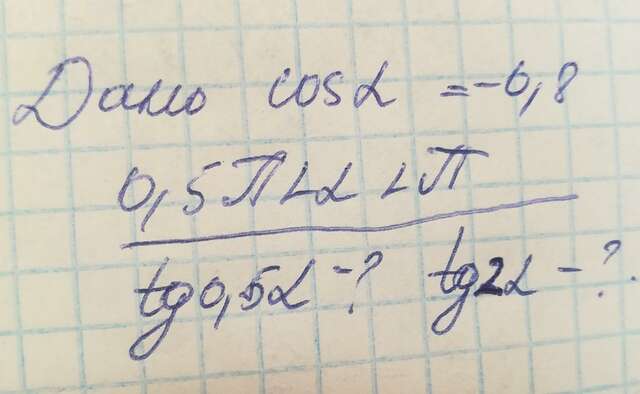 Дано cosα = -0,8
0,5π<α<π
tg0,5α-? tg2α-?